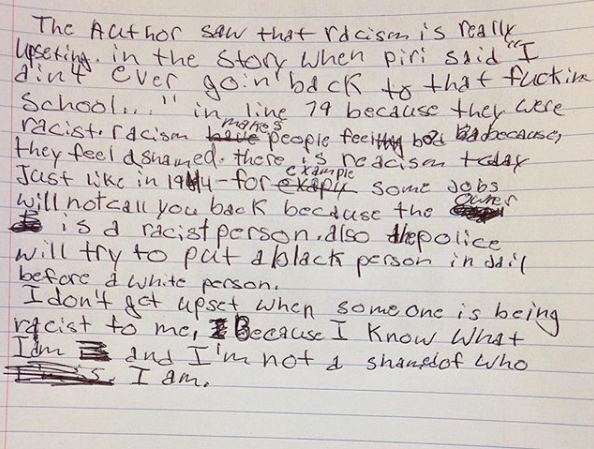 The Author saw that racism is really
upseting. in the story when piri said "I
ain't ever goin' back to that fuckin
school..." in line 79 because they were
racist. racism makes people feel bad because,
they feel ashamed. there is reacism today
Just like in 1944-for example some jobs
will not call you back because the owner
is a racist person. also the police
will try to put a black person in jail
before a white person.
I don't get upset when some one is being
racist to me, Because I know what
I am and I'm not a shamed of who
I am.